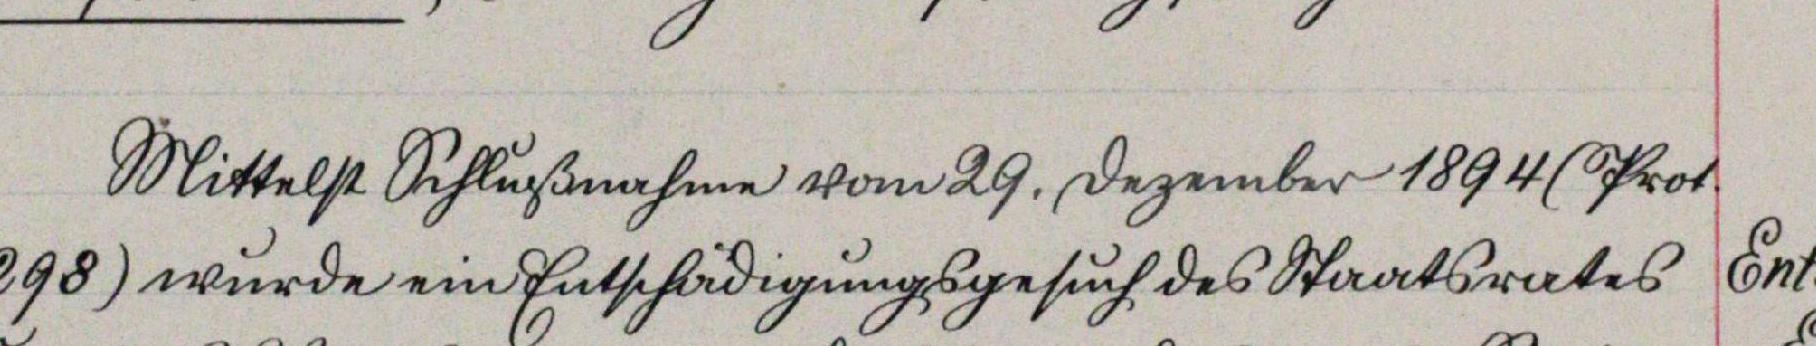 Mittelst Schlußnahme vom 29. Dezember 1894 (Prot.
298) wurde ein Entschädigungsgesuch des Staatsrates
Ent